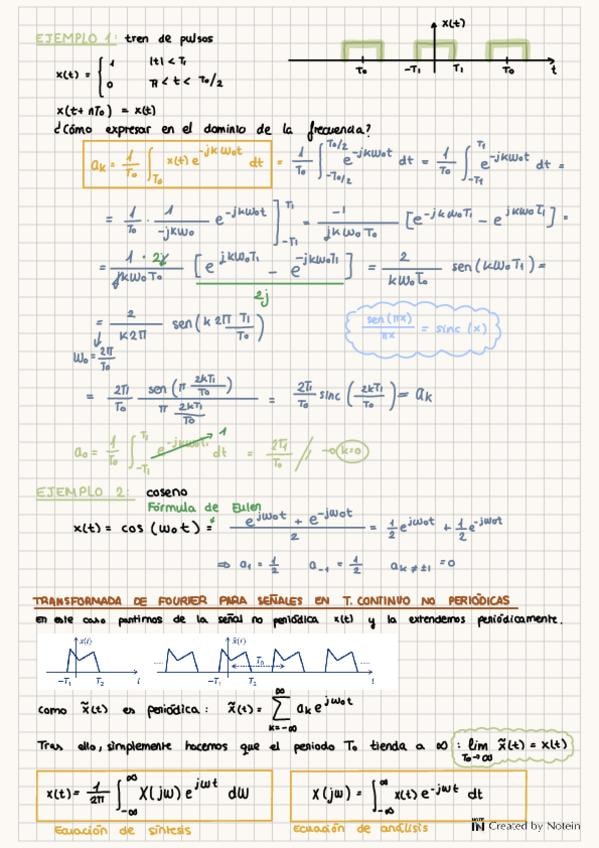 EJEMPLO 1: tren de pulsos
x(t)
x(t) = { 1 |t| < T₁
0 T₁ < t < T₀/2
T₀ -T₁ T₁ T₀ t
x(t + nT₀) = x(t)
¿Cómo expresar en el dominio de la frecuencia?
aₖ = 1/T₀ ∫_T₀ x(t) e^(-jkω₀t) dt = 1/T₀ ∫_(-T₀/2)^(T₀/2) e^(-jkω₀t) dt = 1/T₀ ∫_(-T₁)^(T₁) e^(-jkω₀t) dt =
= 1/T₀ · 1/(-jkω₀) e^(-jkω₀t) ]_(-T₁)^(T₁) = -1/(jkω₀T₀) [e^(-jkω₀T₁) - e^(jkω₀T₁)] =
= 1 · 2j/(jkω₀T₀) [e^(jkω₀T₁) - e^(-jkω₀T₁)] / 2j = 2/(kω₀T₀) sen(kω₀T₁) =
= 2/(k2π) sen(k2π T₁/T₀)
sen(πx)/(πx) = sinc(x)
ω₀ = 2π/T₀
= 2T₁/T₀ sen(π 2kT₁/T₀)/(π 2kT₁/T₀) = 2T₁/T₀ sinc(2kT₁/T₀) = aₖ
a₀ = 1/T₀ ∫_(-T₁)^(T₁) e^(-jkω₀t) 1 dt = 2T₁/T₀ // → k=0
EJEMPLO 2: coseno
Fórmula de Euler
x(t) = cos(ω₀t) = (e^(jω₀t) + e^(-jω₀t))/2 = 1/2 e^(jω₀t) + 1/2 e^(-jω₀t)
⇒ a₁ = 1/2 a₋₁ = 1/2 aₖ≠±₁ = 0
TRANSFORMADA DE FOURIER PARA SEÑALES EN T. CONTINUO NO PERIÓDICAS
en este caso partimos de la señal no periódica x(t) y la extendemos periódicamente.
x(t) x̃(t)
T₀
-T₁ T₂ t -T₁ T₂ t
como x̃(t) es periódica: x̃(t) = ∑_(k=-∞)^∞ aₖ e^(jω₀t)
Tras ello, simplemente hacemos que el periodo T₀ tienda a ∞ : lim_(T₀→∞) x̃(t) = x(t)
x(t) = 1/2π ∫_(-∞)^∞ X(jω) e^(jωt) dω
X(jω) = ∫_(-∞)^∞ x(t) e^(-jωt) dt
Ecuación de síntesis
Ecuación de análisis
Created by Notein